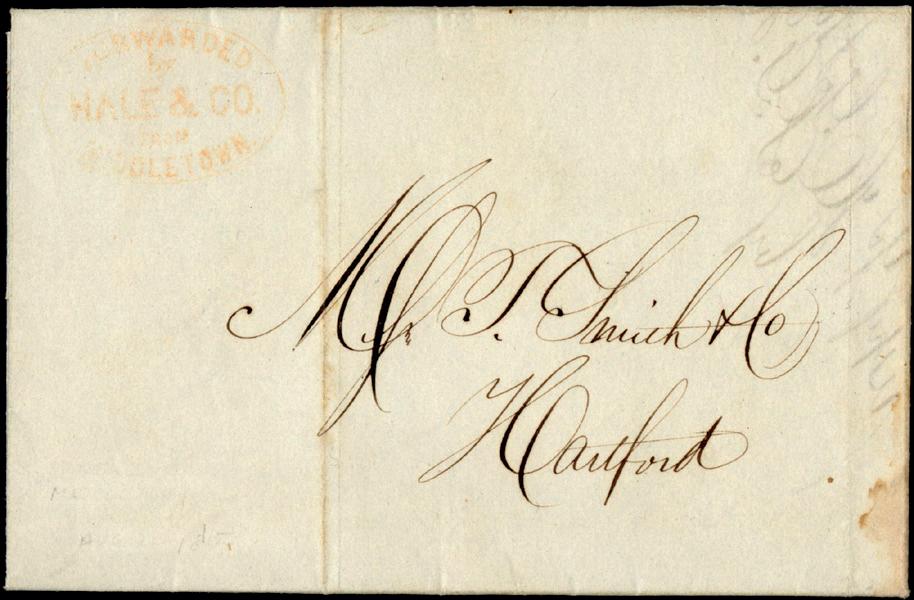 FORWARDED
by
HALE & CO.
FROM
MIDDLETOWN.
Mssr T. Smith & Co
Hartford